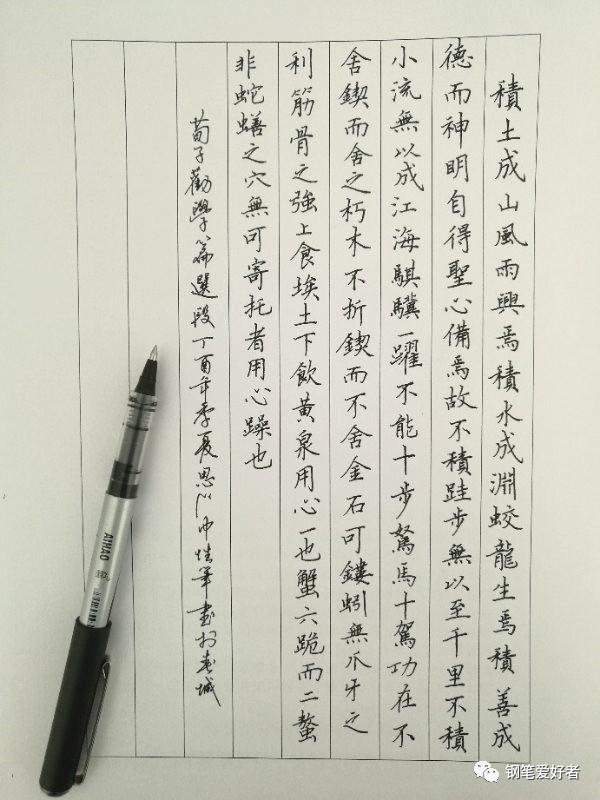 積土成山風雨興焉積水成淵蛟龍生焉積善成
德而神明自得聖心備焉故不積跬步無以至千里不積
小流無以成江海騏驥一躍不能十步駑馬十駕功在不
舍鍥而舍之朽木不折鍥而不舍金石可鏤蚓無爪牙之
利筋骨之強上食埃土下飲黃泉用心一也蟹六跪而二螯
非蛇蟮之穴無可寄托者用心躁也
荀子勸學篇選段丁酉年季夏思 中性筆書於春城
AIHAO
钢笔爱好者